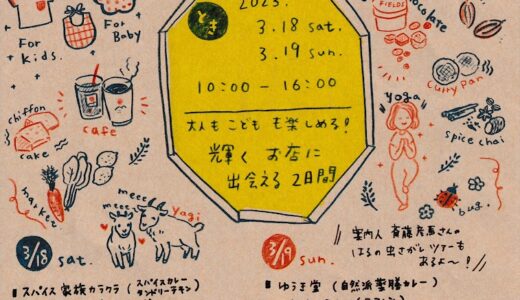 2023.
とき
3.18 sat.
3.19 sun.
10:00 – 16:00
大人もこどもも楽しめる!
輝くお店に
出会える2日間
For
Kids.
For
Baby
chiffon
cake
cafe
market
meeee
meeee
Yagi
FIELDS
chocolate
curry pan
Yoga
spice chai
bug.
3/18 sat.
スパイス家族カラクタ(スパイスカレー
タンドリーチキン)
3/19 sun.
案内人 斉藤彦馬さんの
はるの虫さがしツアーも
あるよ〜!
ゆうき堂(自然派薬膳カレー)